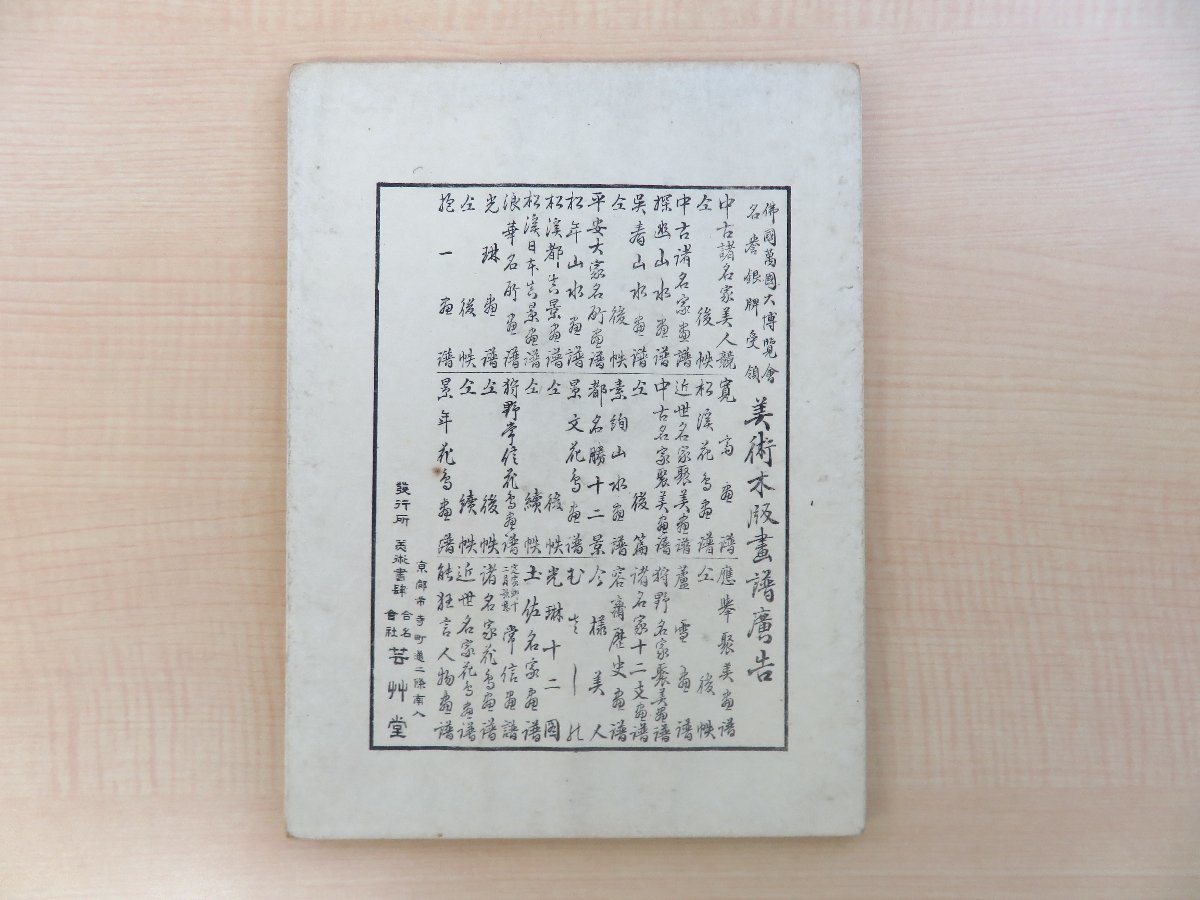 佛國萬國大博覽會
名譽銀牌受領
美術木版畫譜廣告
中古諸名家美人競
仝後帙
中古諸名家画譜
探幽山水画譜
吳春山水画譜
仝後帙
平安大家名所画譜
松年山水画譜
松溪都真景画譜
松溪日本真景画譜
浪華名所画譜
光琳画譜
仝後帙
抱一画譜
寛斎画譜
松溪花鳥画譜
近世名家聚美画譜
中古名家聚美画譜
仝後篇
素絢山水画譜
都名勝十二景
景文花鳥画譜
仝後帙
仝續帙
狩野常信花鳥画譜
仝後帙
仝續帙
景年花鳥画譜
應擧聚美画譜
仝後帙
蘆雪画譜
狩野名家聚美画譜
諸名家十二支画譜
容齋歴史画譜
今樣美人
光琳十二図
土佐名家画譜
常信画譜
諸名家花鳥画譜
近世名家花鳥画譜
能狂言人物画譜
京都市寺町通二條南入
發行所 美術書肆 合名會社 芸艸堂